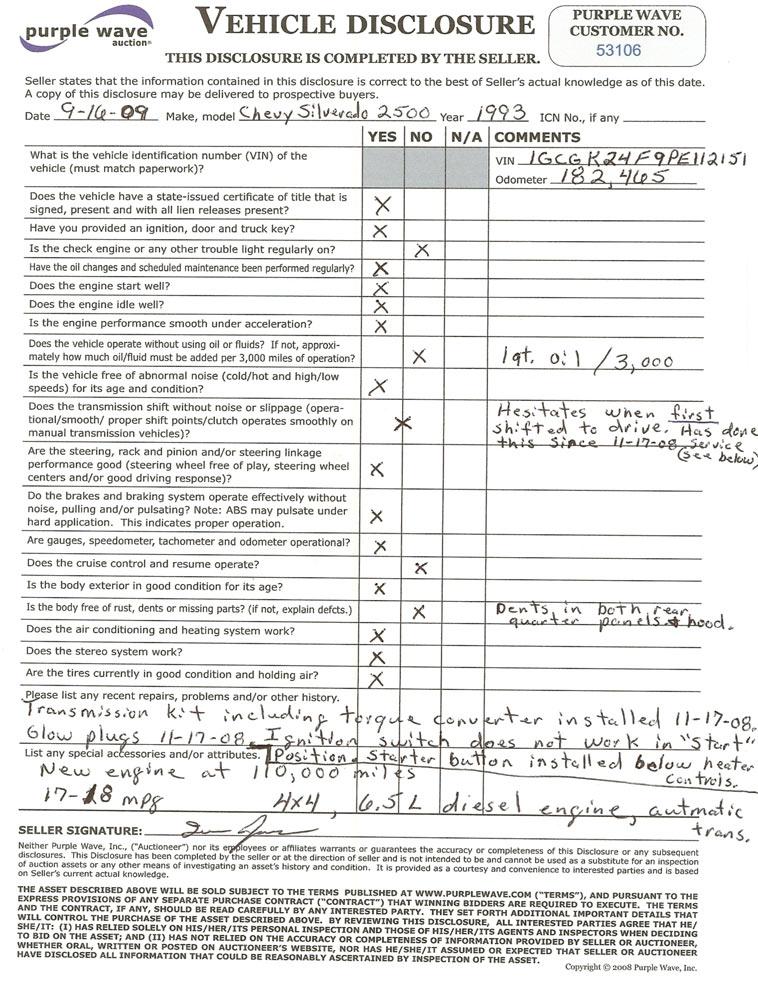 purple wave
auction®
VEHICLE DISCLOSURE
THIS DISCLOSURE IS COMPLETED BY THE SELLER.
PURPLE WAVE
CUSTOMER NO.
53106
Seller states that the information contained in this disclosure is correct to the best of Seller's actual knowledge as of this date.
A copy of this disclosure may be delivered to prospective buyers.
Date 9-16-09 Make, model Chevy Silverado 2500 Year 1993 ICN No., if any
YES NO N/A COMMENTS
What is the vehicle identification number (VIN) of the
vehicle (must match paperwork)?
VIN 1GCGK24F9PE112151
Odometer 182,465
Does the vehicle have a state-issued certificate of title that is
signed, present and with all lien releases present? X
Have you provided an ignition, door and truck key? X
Is the check engine or any other trouble light regularly on? X
Have the oil changes and scheduled maintenance been performed regularly? X
Does the engine start well? X
Does the engine idle well? X
Is the engine performance smooth under acceleration? X
Does the vehicle operate without using oil or fluids? If not, approxi-
mately how much oil/fluid must be added per 3,000 miles of operation? X 1qt. oil / 3,000
Is the vehicle free of abnormal noise (cold/hot and high/low
speeds) for its age and condition? X
Does the transmission shift without noise or slippage (opera-
tional/smooth/ proper shift points/clutch operates smoothly on
manual transmission vehicles)? X
Hesitates when first
shifted to drive. Has done
this since 11-17-08 service
(see below)
Are the steering, rack and pinion and/or steering linkage
performance good (steering wheel free of play, steering wheel
centers and/or good driving response)? X
Do the brakes and braking system operate effectively without
noise, pulling and/or pulsating? Note: ABS may pulsate under
hard application. This indicates proper operation. X
Are gauges, speedometer, tachometer and odometer operational? X
Does the cruise control and resume operate? X
Is the body exterior in good condition for its age? X
Is the body free of rust, dents or missing parts? (if not, explain defcts.) X
Dents in both rear
quarter panels & hood.
Does the air conditioning and heating system work? X
Does the stereo system work? X
Are the tires currently in good condition and holding air? X
Please list any recent repairs, problems and/or other history.
Transmission kit including torque converter installed 11-17-08.
Glow plugs 11-17-08. Ignition switch does not work in "Start"
List any special accessories and/or attributes. Position. Starter button installed below heater
controls.
New engine at 110,000 miles
17-18 mpg 4x4, 6.5 L diesel engine, autmatic
trans.
SELLER SIGNATURE:
Neither Purple Wave, Inc., ("Auctioneer") nor its employees or affiliates warrants or guarantees the accuracy or completeness of this Disclosure or any subsequent
disclosures. This Disclosure has been completed by the seller or at the direction of seller and is not intended to and cannot be used as a substitute for an inspection
of auction assets or any other means of investigating an asset's history and condition. It is provided as a courtesy and convenience to interested parties and is based
on Seller's current actual knowledge.
THE ASSET DESCRIBED ABOVE WILL BE SOLD SUBJECT TO THE TERMS PUBLISHED AT WWW.PURPLEWAVE.COM ("TERMS"), AND PURSUANT TO THE
EXPRESS PROVISIONS OF ANY SEPARATE PURCHASE CONTRACT ("CONTRACT") THAT WINNING BIDDERS ARE REQUIRED TO EXECUTE. THE TERMS
AND THE CONTRACT, IF ANY, SHOULD BE READ CAREFULLY BY ANY INTERESTED PARTY. THEY SET FORTH ADDITIONAL IMPORTANT DETAILS THAT
WILL CONTROL THE PURCHASE OF THE ASSET DESCRIBED ABOVE. BY REVIEWING THIS DISCLOSURE, ALL INTERESTED PARTIES AGREE THAT HE/
SHE/IT: (I) HAS RELIED SOLELY ON HIS/HER/ITS PERSONAL INSPECTION AND THOSE OF HIS/HER/ITS AGENTS AND INSPECTORS WHEN DECIDING
TO BID ON THE ASSET; AND (II) HAS NOT RELIED ON THE ACCURACY OR COMPLETENESS OF INFORMATION PROVIDED BY SELLER OR AUCTIONEER,
WHETHER ORAL, WRITTEN OR POSTED ON AUCTIONEER'S WEBSITE, NOR HAS HE/SHE/IT ASSUMED OR EXPECTED THAT SELLER OR AUCTIONEER
HAVE DISCLOSED ALL INFORMATION THAT COULD BE REASONABLY ASCERTAINED BY INSPECTION OF THE ASSET.
Copyright © 2008 Purple Wave, Inc.